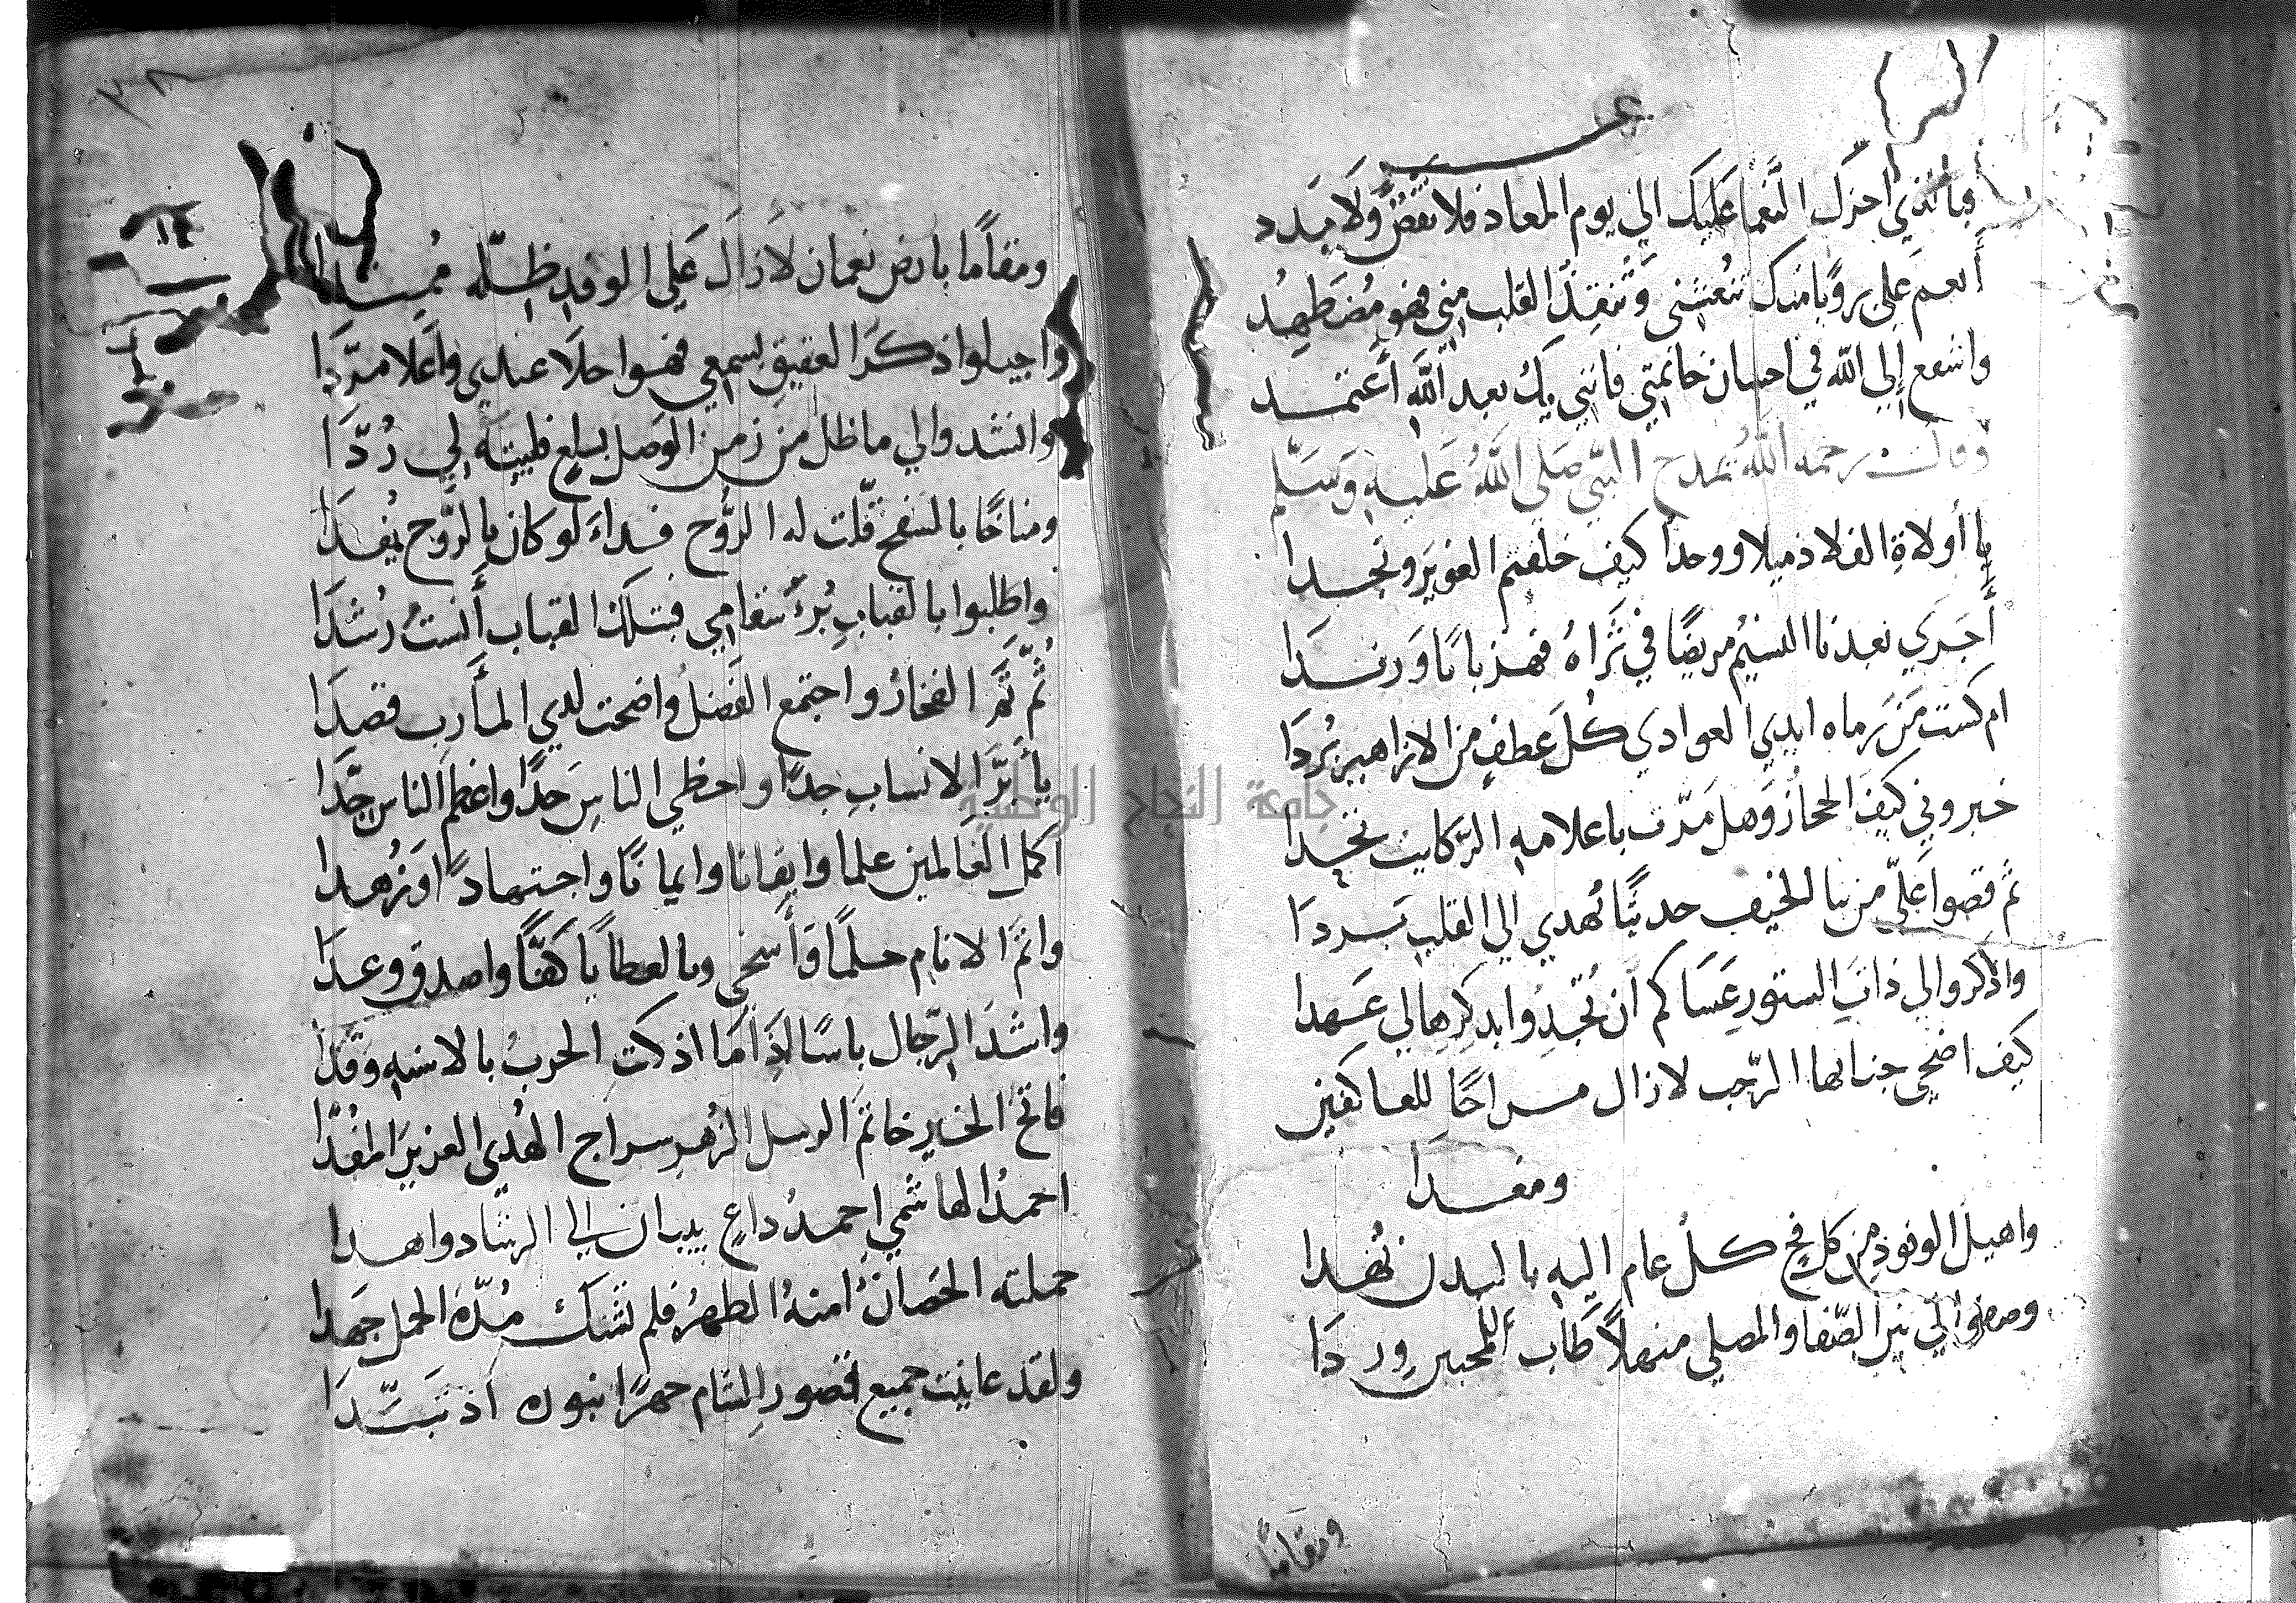 فبالذي اجزل النعما عليك الي يوم المعاد فلا نقض ولا يبدد
أنعم علي برويا منك تنعشني وتنقذ القلب مني فهو مضطهد
واشفع الي الله في احسان خاتمتي فانني بك بعد الله أعتمد
وقال رحمه الله يمدح النبي صلي الله عليه وسلم
يا أولاة الفلا ذميلا ووخدا كيف خلفتم الغوير ونجدا
أجري بعدنا النسيم مريضا في ثراه فهز بانا ورندا
ام كست من رماه ايدي الغوادي كل عطف من الازاهير بردا
خبروني كيف الحجاز وهل مرت باعلامه الركايب تخدا
ثم قصوا علي من نبا الخيف حديثا تهدي الي القلب بردا
واذكروا لي ذات الستور عساكم أن تجدوا بذكرها لي عهدا
كيف اضحي جنابها الرحب لا زال مراحا للعاكفين
ومغدا
واهيل الوفود من كل فج كل عام اليه بالبدن تهدا
وصفوا لي بين الصفا والمصلي منهلا طاب للمحبين وردا
ومقاما
ومقاما بارض نعمان لا زال علي الوفد ظله ممتدا
واجيلوا ذكر العقيق بسمعي فهو احلا عندي وأعلا مردا
وانشدوا لي ما ظل من زمن الوصل بسلع فليته لي ردا
ومناخا بالسفح قلت له الروح فداء لو كان بالروح يفدا
واطلبوا بالقباب برء سقامي فبتلك القباب أنست رشدا
ثم تم الفخار واجتمع الفضل واضحت لدي المأرب قصدا
يا أبر الانساب جدا واحظي الناس جدا واعظم الناس جدا
اكمل العالمين علما وايقانا وايمانا واجتهادا وزهدا
واتم الانام حلما وأسخي وبالعطايا كفا واصدق وعدا
واشد الرجال باسا اذا ما اذكت الحرب بالاسنه وقدا
فاتح الخير خاتم الرسل الزهر سراج الهدي العزيز المفدا
احمد الهاشمي احمد داع بيبان الي الرشاد واهدا
حملته الحصان امنه الطهر فلم تشك مدة الحمل جهدا
ولقد عاينت جميع قصور الشام جهرا بنوره اذ تبدا